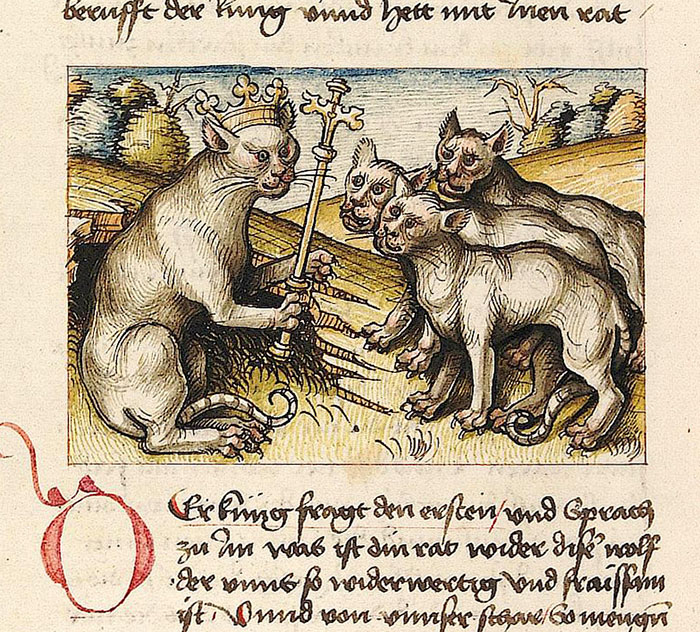 berufft der kung vnnd hett mit Inen rat
DEr kunig fragt den ersten / vnd sprach
zu Im was ist din rat wider dise wolf
der vnns so widerwertig vnd fraissam
ist. Vnnd von vnnser schar / So mengen